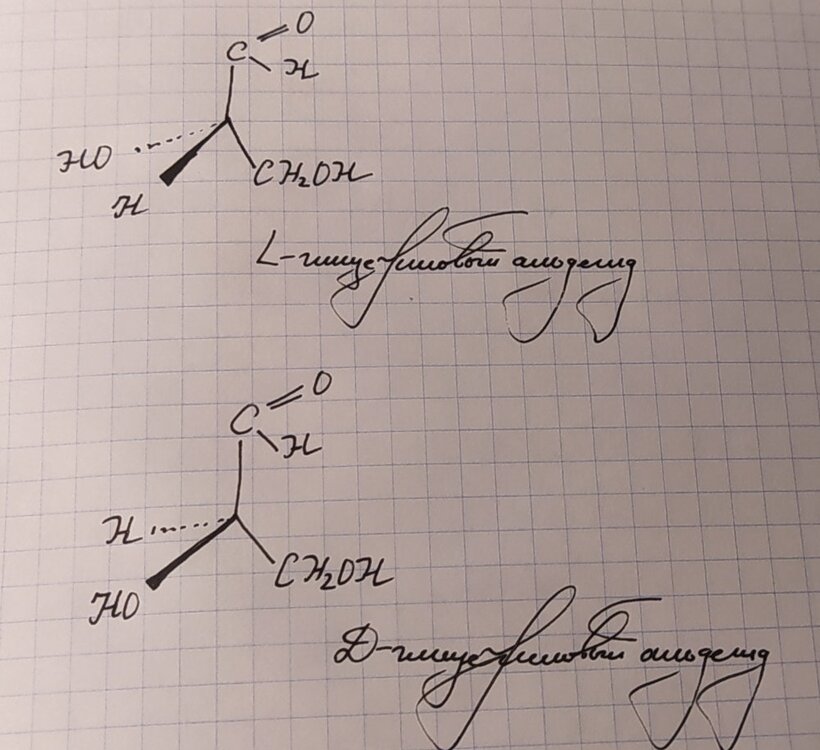 C=O
H
HO
H
CH₂OH
L-глицериновый альдегид
C=O
H
H
HO
CH₂OH
D-глицериновый альдегид